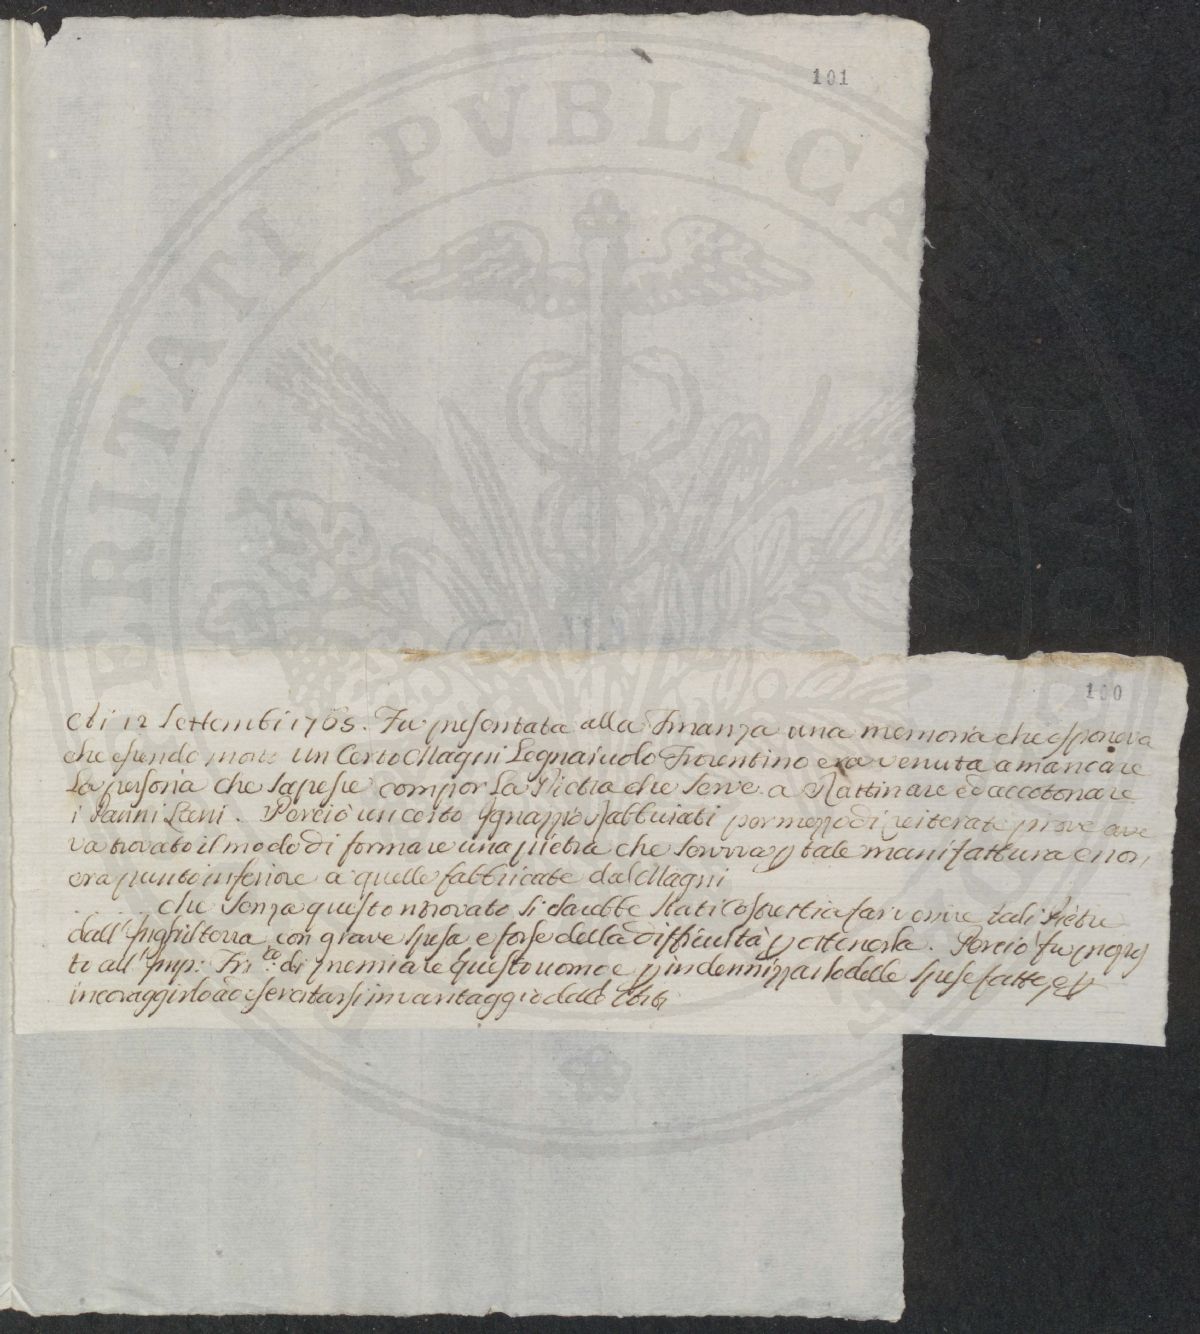 101
100
Adi 12 Settembr 1765. Fu presentata alla Finanza una memoria che esponeva
che essendo morto un Certo Magni Legnaiuolo Fiorentino era venuta a mancare
la persona che sapesse compor la Pietra che serve a Rattinare ed accotonare
i Panni Lani. Perciò un certo Ignazzio Rabbuiati per mezzo di reiterate prove ave
va trovato il modo di formare una pietra che serviva p tale manifattura e non
era punto inferiore a quelle fabbricate dal Magni
che senza questo ritrovato si sarebbe stati costretti a far venire tali Pietre
dall'Inghilterra con grave spesa e forse della difficultà p ottenerla. Perciò fu propos
to all' Imp: di premiare questo uomo e p indennizzarlo delle spese fatte, e p
incoraggirlo ad esercitarsi in vantaggio delle Arti